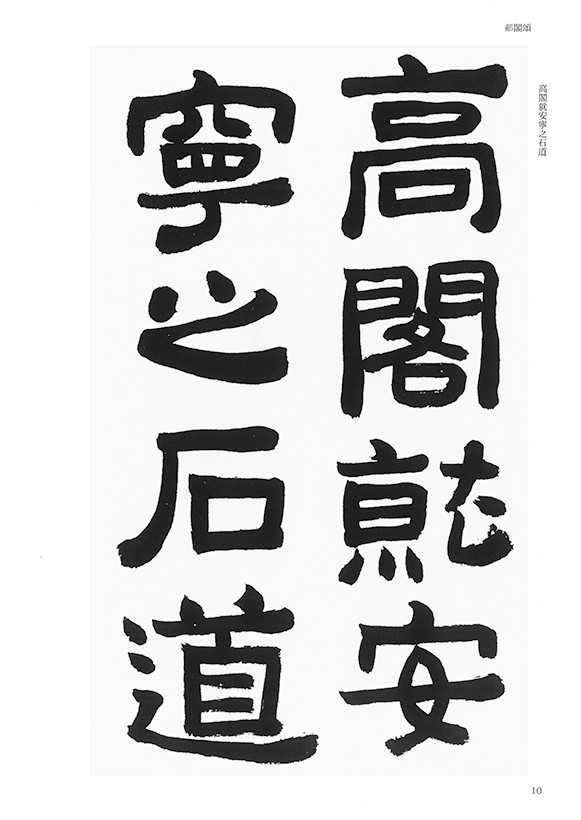 郙閣頌
高閣就安寧之石道
高閣就安
寧之石道
10